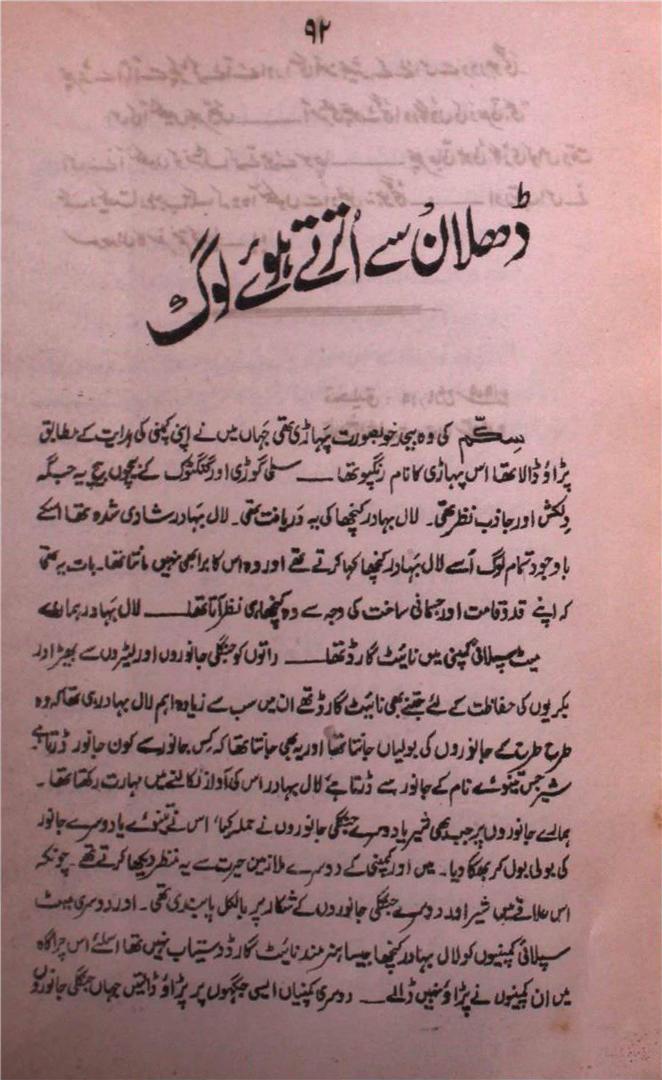 ۹۲
ڈھلان سے اُترتے ہوئے لوگ
سِکّم کی وہ بیحد خوبصورت پہاڑی تھی جہاں میں نے اپنی کمپنی کی ہدایت کے مطابق
پڑاؤ ڈالا تھا اس پہاڑی کا نام رنگپو تھا ــــ سلی گوڑی اور گنگٹوک کے بیچوں بیچ یہ جگہ
دِلکش اور جاذب نظر تھی۔ لال بہادر کنچھا کی یہ دَریافت تھی۔ لال بہادر شادی شدہ تھا اسکے
باوجود تمام لوگ اُسے لال بہادر کنچھا کہا کرتے تھے اور وہ اس کا برا بھی نہیں مانتا تھا۔ بات یہ تھی
کہ اپنے قد و قامت اور جسمانی ساخت کی وجہ سے وہ کنچھا ہی نظر آتا تھا ــــ لال بہادر ہمارے
میٹ سپلائی کمپنی میں نائیٹ گارڈ تھا ــــ راتوں کو جنگلی جانوروں اور لیٹروں سے بھیڑ اور
بکریوں کی حفاظت کے لئے جتنے بھی نائیٹ گارڈ تھے ان میں سب سے زیادہ اہم لال بہادر ہی تھا کہ وہ
طرح طرح کے جانوروں کی بولیاں جانتا تھا اور یہ بھی جانتا تھا کہ کِس جانور سے کون جانور ڈرتا ہے۔
شیر جس تینوئے نام کے جانور سے ڈرتا ہے لال بہادر اس کی آواز نکالنے میں مہارت رکھتا تھا۔
ہمارے جانوروں پر جب بھی شیر یا دوسرے جنگلی جانوروں نے حملہ کیا، اس نے تینوئے یا دوسرے جانور
کی بولی بول کر بھگا دیا۔ میں اور کمپنی کے دوسرے ملازمین حیرت سے یہ منظر دیکھا کرتے تھے۔ چونکہ
اس علاقے میں شیر اور دوسرے جنگلی جانوروں کے شکار پر بالکل پابندی تھی۔ اور دوسری میٹ
سپلائی کمپنیوں کو لال بہادر کنچھا جیسا ہنر مند نائیٹ گارڈ دستیاب نہیں تھا اسلئے اس چراگاہ
میں ان کمپنیوں نے پڑاؤ نہیں ڈالے ــــ دوسری کمپنیاں ایسی جگہوں پر پڑاؤ ڈالتیں جہاں جنگلی جانوروں